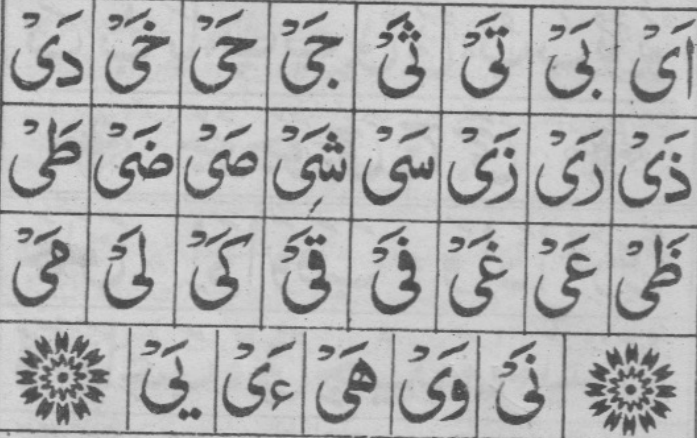 اَیْ بَیْ تَیْ ثَیْ جَیْ حَیْ خَیْ دَیْ
ذَیْ رَیْ زَیْ سَیْ شَیْ صَیْ ضَیْ طَیْ
ظَیْ عَیْ غَیْ فَیْ قَیْ کَیْ لَیْ مَیْ
نَیْ وَیْ هَیْ ءَیْ یَیْ